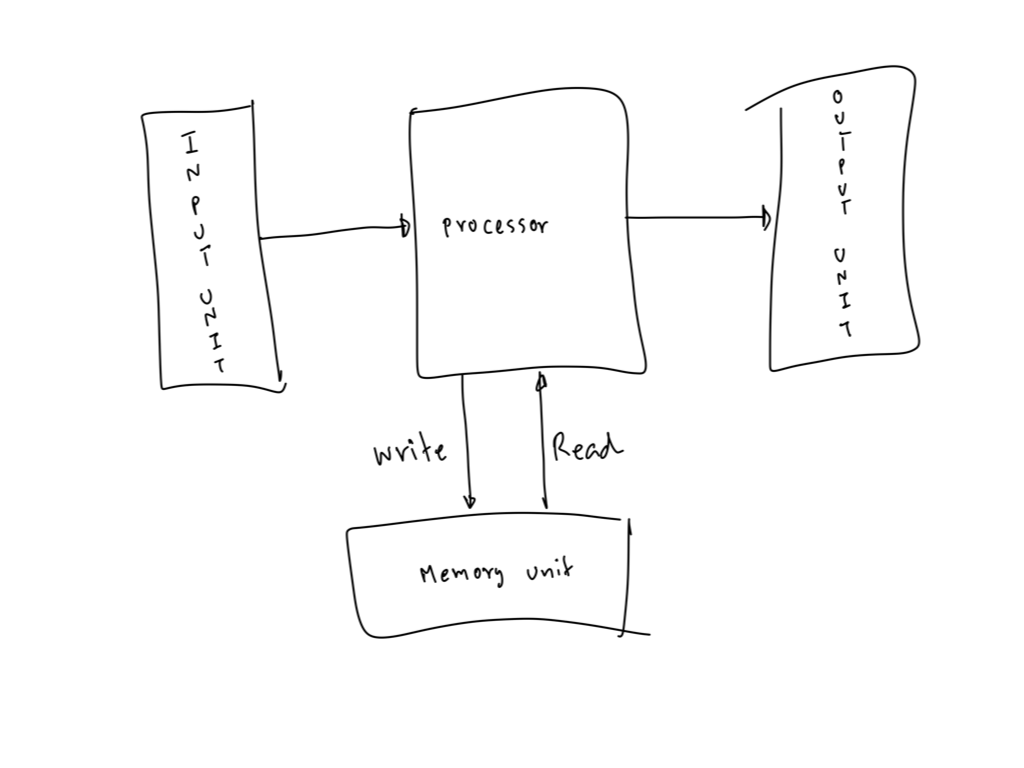 INPUT UNIT
Processor
OUTPUT UNIT
write
Read
Memory unit